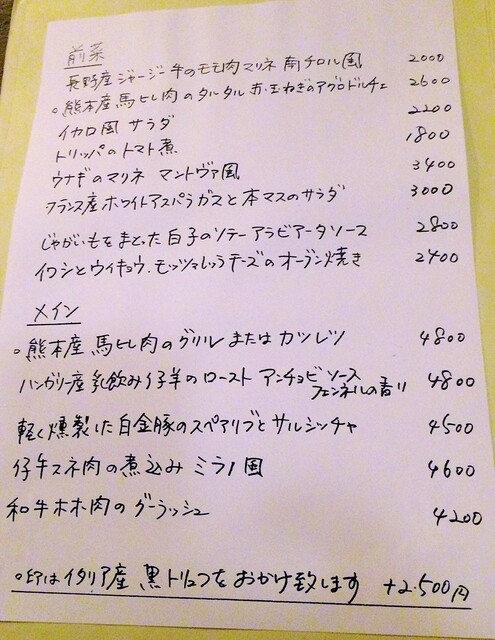 前菜
長野産ジャージー牛のモモ肉マリネ 南チロル風 2000
○熊本産馬ヒレ肉のタルタル 赤玉ねぎのアグロドルチェ 2600
イカロ風 サラダ 2200
トリッパのトマト煮 1800
ウナギのマリネ マントヴァ風 3400
フランス産ホワイトアスパラガスと本マスのサラダ 3000
じゃがいもをまとった白子のソテー アラビアータソース 2800
イワシとウイキョウ、モッツァレッラチーズのオーブン焼き 2400
メイン
○熊本産 馬ヒレ肉のグリル または カツレツ 4800
ハンガリー産乳飲み仔羊のロースト アンチョビソース フェンネルの香り 4800
軽く燻製した白金豚のスペアリブとサルシッチャ 4500
仔牛スネ肉の煮込み ミラノ風 4600
和牛ホホ肉のグーラッシュ 4200
○印はイタリア産 黒トリュフをおかけ致します +2.500円